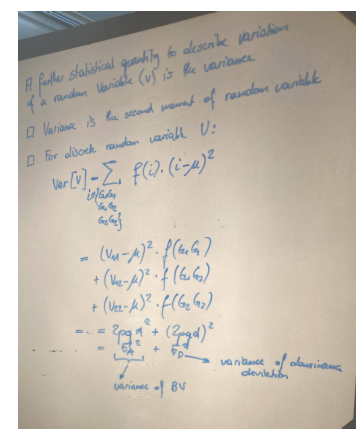 A further statistical quantity to describe variation
of a random variable (V) is the variance
□ Variance is the second moment of random variable
□ For discrete random variable V:
Var[V] = ∑ f(i)·(i-μ)²
i∈{G₁G₁
G₁G₂
G₂G₂}
= (V₁₁-μ)² · f(G₁G₁)
+ (V₁₂-μ)² · f(G₁G₂)
+ (V₂₂-μ)² · f(G₂G₂)
= .. = 2pqα² + (2pqd)²
= σ²_A + σ²_D → variance of dominance
deviation
variance of BV